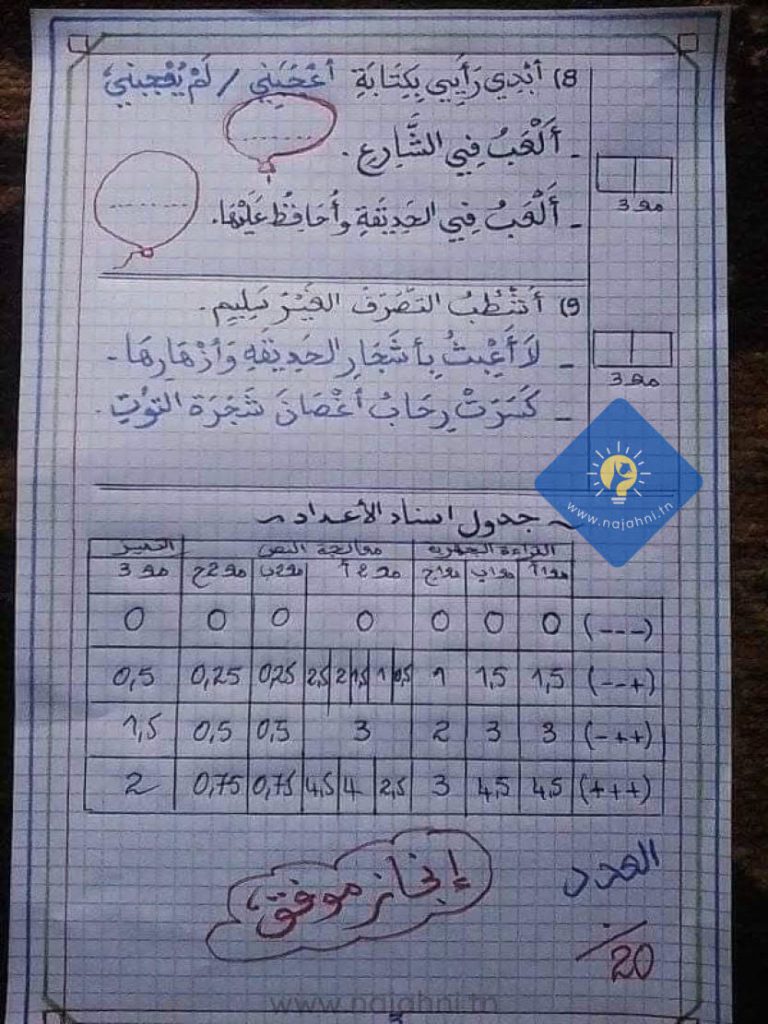 8) أُبْدِي رَأْيِي بِكِتَابَةِ أَعْجَبَنِي / لَمْ يُعْجِبْنِي
- أَلْعَبُ فِي الشَّارِعِ .
- أَلْعَبُ فِي الحَدِيقَةِ وأُحَافِظُ عَلَيْهَا.
مع 3
9) أَشْطُبُ التَّصَرُّفَ الغَيْرَ سَلِيمٍ.
- لَا أَعْبَثُ بِأَشْجَارِ الحَدِيقَةِ وَأَزْهَارِهَا.
- كَسَرَتْ رِحَابُ أَغْصَانَ شَجَرَة التوُتِ.
مع 3
www.najahni.tn
~ جدول اسناد الأعداد ~
القراءة الجهرية معالجة النص التميز
مع1أ مع1ب مع1ج مع2أ مع2ب مع2ج مع 3
(---) 0 0 0 0 0 0 0
(--+) 1,5 1,5 1 0,5 1 1,5 2 2,5 0,25 0,25 0,5
(-++) 3 3 2 3 0,5 0,5 1,5
(+++) 4,5 4,5 3 2,5 4 4,5 0,75 0,75 2
العدد
إنجاز موفق
/20
www.najahni.tn